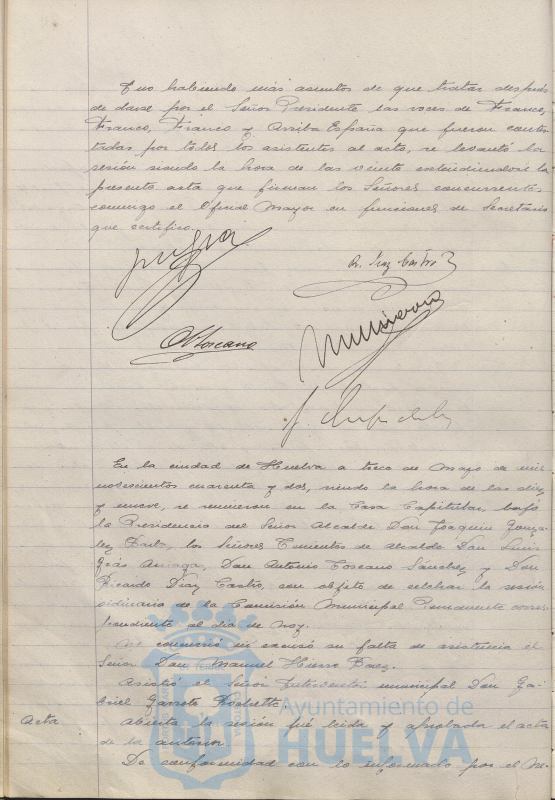 Y no habiendo más asuntos de que tratar después
de darse por el Señor Presidente las voces de Franco,
Franco, Franco y Arriba España que fueron contes
tadas por todos los asistentes al acto, se levantó la
sesión siendo la hora de las veinte extendiendose la
presente acta que firman los Señores concurrentes
conmigo el Oficial Mayor en funciones de Secretario
que certifico.
R. Diaz Castro
A Toscano
En la ciudad de Huelva a trece de Mayo de mil
novecientos cuarenta y dos, siendo la hora de las diez
y nueve, se reunieron en la Casa Capitular, bajo
la Presidencia del Señor Alcalde Don Joaquin Gonza
lez Barba, los Señores Tenientes de alcalde Don Luis
Arriaga, Don Antonio Toscano Sanchez y Don
Ricardo Diaz Castro, con objeto de celebrar la sesión
ordinaria de la Comisión Municipal Permanente corres
pondiente al día de hoy.
No concurrió ni excusó su falta de asistencia el
Señor Don Manuel Hierro Baez.
Asistió el señor Interventor municipal Don Ga
briel Garrote
Acta
Abierta la sesión fué leida y aprobada el acta
de la anterior.
De conformidad con lo informado por el Ne-
Ayuntamiento de
HUELVA